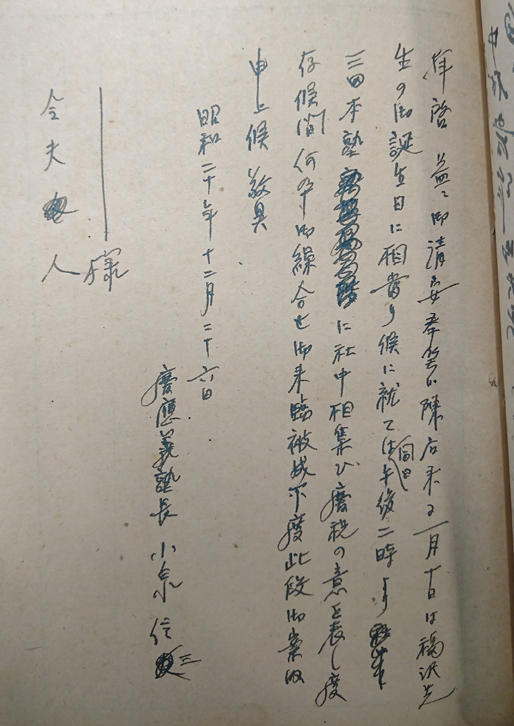 拝啓 益々御清安奉賀候 陳者来る一月十日は福沢先
生の御誕生日に相当り候に就ては同日午後二時より
三田本塾に社中相集ひ慶祝の意を表し度
存候間何卒御繰合せ御来臨被成下度此段御案内
申上候 敬具
昭和二十年十二月二十六日
慶應義塾長 小泉信三
様
令夫人